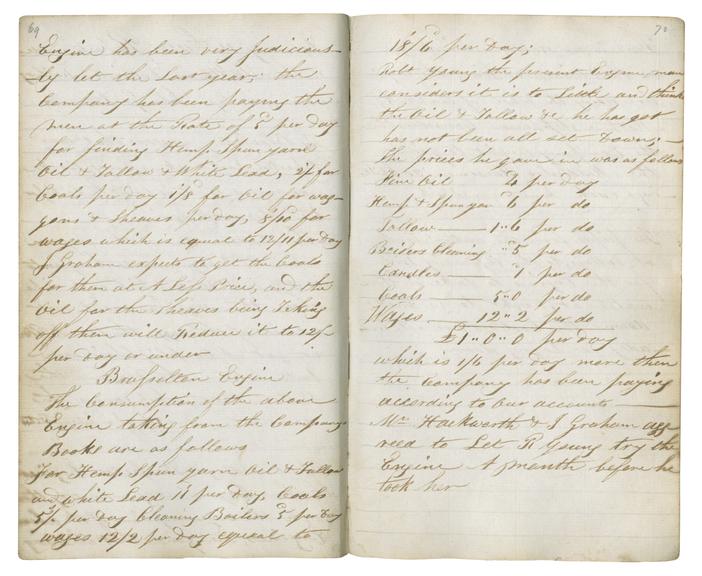 69
Engine has been very Judicious-
ly let the Last year; the
Company has been paying the
men at the Rate of per day
for finding Hemp, Spun yarn
Oil & Tallow & White Lead, 2/ for
Coals per day 1/8 for Oil for wag-
gons & Sheaves per day, 8/10 for
wages which is equal to 12/11 per Day
J Graham expects to get the Coals
for them at A Less Price, and the
Oil for the Sheaves being Taking
off them will Reduce it to 12/-
per day or under
Brusselton Engine
The Consumption of the above
Engine taking from the Company
Books are as follows
For Hemp Spun yarn Oil & Tallow
and white Lead per day Coals
5/- per day Cleaning Boilers 5 per Day
wages 12/2 per day equal to
70
18/6 per Day;
Robt Young the present Engine man
considers it is to Little and thinks
the Oil & Tallow &c he has got
has not been all set Down;
The prices he gave in was as follows
Pine Oil per day
Hemp & Spun yarn 6 per do
Tallow 1"6 per do
Boilers Cleaning "5 per do
Candles "1 per do
Coals 5"0 per do
Wages 12"2 per do
£1"0"0 per day
which is 1/6 per day more then
the Company has been paying
according to Our accounts
Mr Hackworth & J Graham agg-
reed to Let R Young try the
Engine A month before he
took her